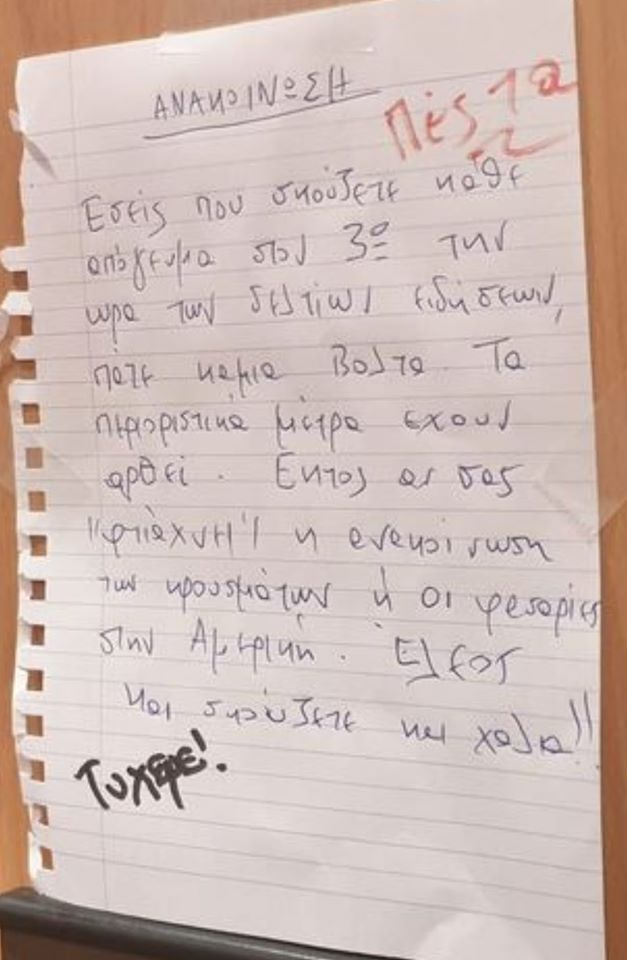 ΑΝΑΚΟΙΝΩΣΗ
Πές τα
Εσείς που σκούζετε κάθε
απόγευμα στον 3º την
ωρα των δελτίων ειδήσεων,
πάτε καμια βολτα. Τα
περιοριστικά μέτρα εχουν
αρθεί. Εκτος αν σας
"φτιάχνει" η ανακοίνωση
των κρουσμάτων ή οι φασαρίες
στην Αμερική. Ελεος
Και σκούζετε και χαλια!!
Τυχερέ!